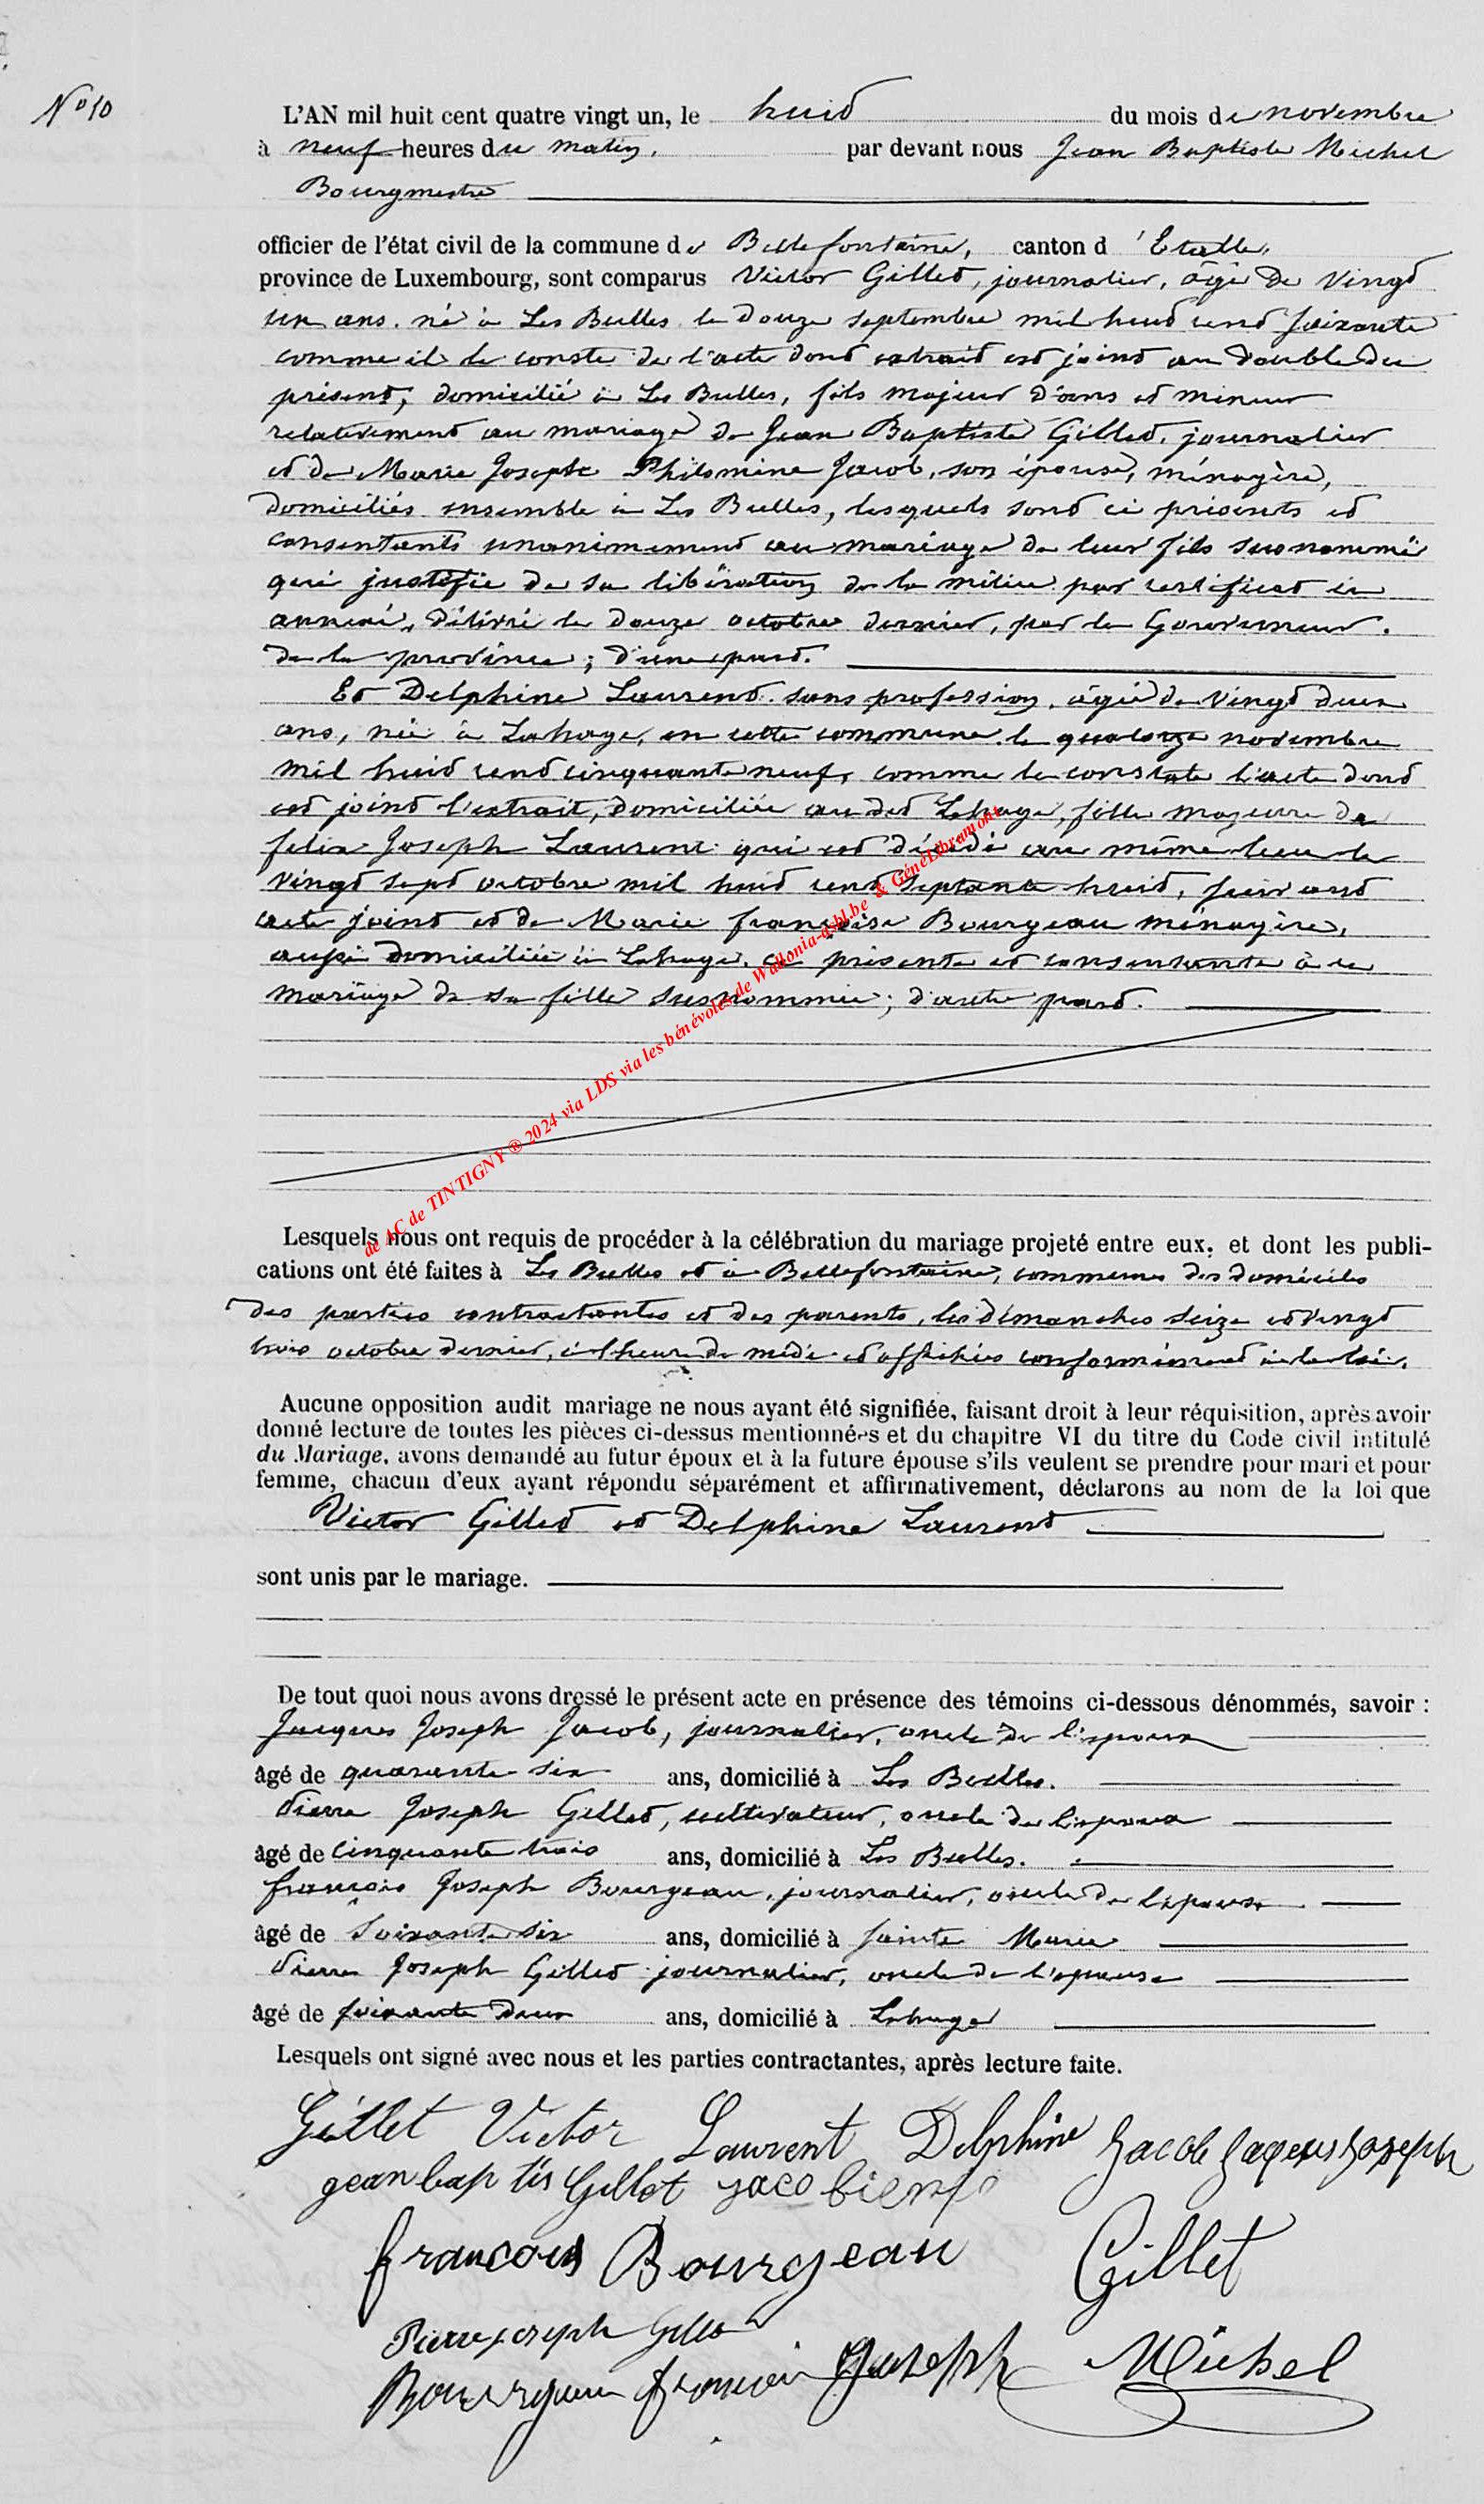 N° 10
L'AN mil huit cent quatre vingt un, le huit du mois de novembre
à neuf heures du matin, par devant nous Jean Baptiste Michel
Bourgmestre
officier de l'état civil de la commune de Bellefontaine, canton d'Etalle,
province de Luxembourg, sont comparus Victor Gillet, journalier, âgé de vingt
un ans, né à Les Bulles le douze septembre mil huit cent soixante
comme il le conste de l'acte dont extrait est joint au double du
présent, domicilié à Les Bulles, fils majeur d'ans et mineur
relativement au mariage de Jean Baptiste Gillet, journalier
et de Marie Josephe Philomine Jacob, son épouse, ménagère,
domiciliés ensemble à Les Bulles, lesquels sont ci présents et
consentants unanimement au mariage de leur fils susnommé
qui justifie de sa libération de la milice par certificat ci
annexé, délivré le douze octobre dernier, par le Gouverneur
de la province; d'une part.
Et Delphine Laurent sans profession, âgée de vingt deux
ans, née à Lahage, en cette commune le quatorze novembre
mil huit cent cinquante neuf, comme le constate l'acte dont
est joint l'extrait, domiciliée au dit Lahage, fille majeure de
felix Joseph Laurent qui est décédé au même lieu le
vingt sept octobre mil huit cent septante huit, suivant
acte joint et de Marie françoise Bourgeau ménagère,
aussi domiciliée à Lahage, ci présente et consentante à ce
mariage de sa fille susnommée; d'autre part.
de AC de TINTIGNY ® 2024 via LDS via les bénévoles de Wallonia-asbl.be & GénéLibramont
Lesquels nous ont requis de procéder à la célébration du mariage projeté entre eux, et dont les publi-
cations ont été faites à Les Bulles et à Bellefontaine, communes des domiciles
des parties contractantes et des parents, les dimanches seize et vingt
trois octobre dernier, à l'heure de midi et affichées conformément à la loi.
Aucune opposition audit mariage ne nous ayant été signifiée, faisant droit à leur réquisition, après avoir
donné lecture de toutes les pièces ci-dessus mentionnées et du chapitre VI du titre du Code civil intitulé
du Mariage, avons demandé au futur époux et à la future épouse s'ils veulent se prendre pour mari et pour
femme, chacun d'eux ayant répondu séparément et affirmativement, déclarons au nom de la loi que
Victor Gillet et Delphine Laurent
sont unis par le mariage.
De tout quoi nous avons dressé le présent acte en présence des témoins ci-dessous dénommés, savoir :
Jacques Joseph Jacob, journalier, oncle de l'époux
âgé de quarante six ans, domicilié à Les Bulles.
Pierre Joseph Gillet, cultivateur, oncle de l'époux
âgé de cinquante trois ans, domicilié à Les Bulles.
françois Joseph Bourgeau, journalier, oncle de l'épouse
âgé de soixante six ans, domicilié à Sainte Marie
Pierre Joseph Gillet journalier, oncle de l'épouse
âgé de soixante deux ans, domicilié à Lahage
Lesquels ont signé avec nous et les parties contractantes, après lecture faite.
Gillet Victor Laurent Delphine Jacob Jaques Joseph
gean bap tis Gillet
francois Bourgeau Gillet
Pierre joseph Gillet
Bourgeau francois Joseph Michel